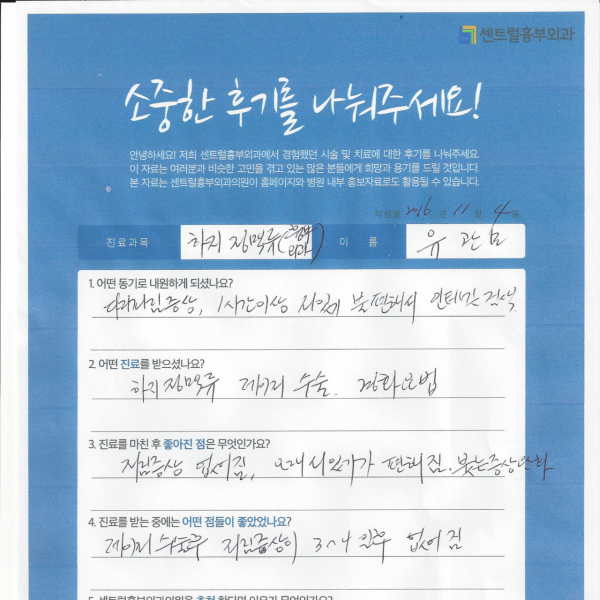 센트럴흉부외과
소중한 후기를 나눠주세요!
안녕하세요! 저희 센트럴흉부외과에서 경험했던 시술 및 치료에 대한 후기를 나눠주세요.
이 자료는 여러분과 비슷한 고민을 겪고 있는 많은 분들에게 희망과 용기를 드릴 것입니다.
본 자료는 센트럴흉부외과의원이 홈페이지와 병원 내부 홍보자료로도 활용될 수 있습니다.
작성일 2016 년 11 월 4 일
진료과목 하지정맥류(흉부외과) 이 름 유관남
1. 어떤 동기로 내원하게 되셨나요?
다리저림증상, 1시간이상 서있기 불편해서 인터넷 검색
2. 어떤 진료를 받으셨나요?
하지정맥류 레이저 수술. 경화요법
3. 진료를 마친 후 좋아진 점은 무엇인가요?
저림증상 없어짐, 오래 서있기가 편해짐. 붓는증상완화
4. 진료를 받는 중에는 어떤 점들이 좋았었나요?
레이저 수술후 저림증상이 3~4일후 없어짐
5. 센트럴흉부외과의원을 추천 한다면 이유가 무엇인가요?